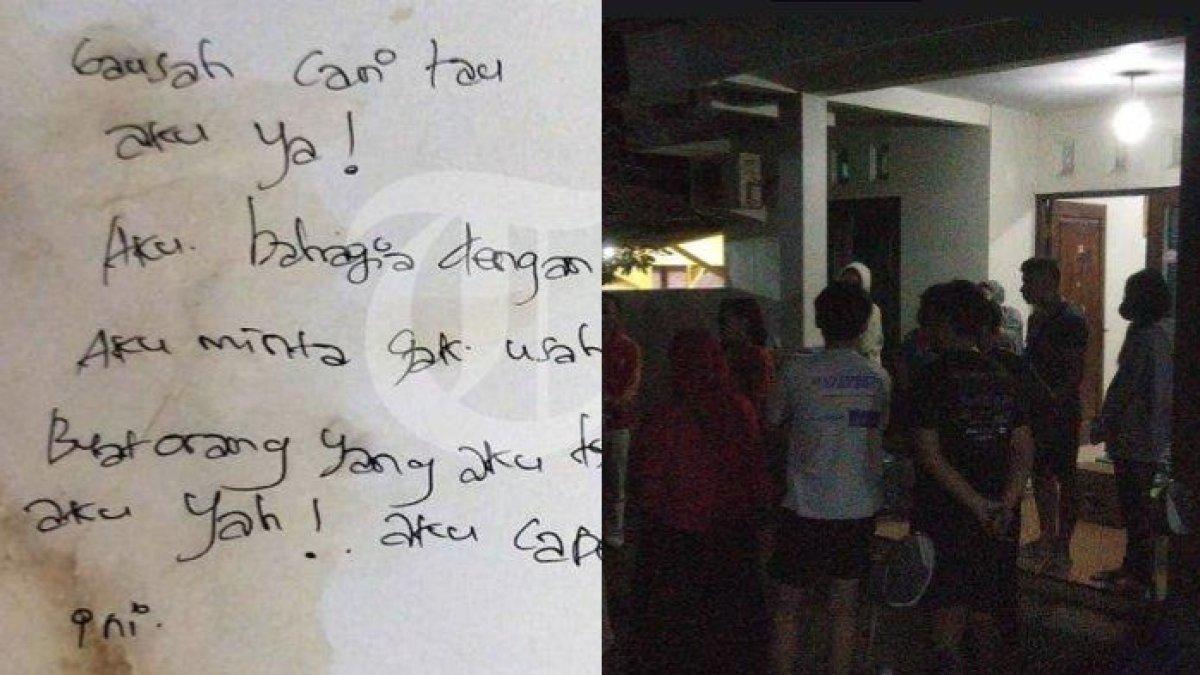 Gausah Cari tau
aku ya!
Aku. bahagia dengan
Aku minta gak. usah
Buat orang yang aku
aku Yah! aku
ini.